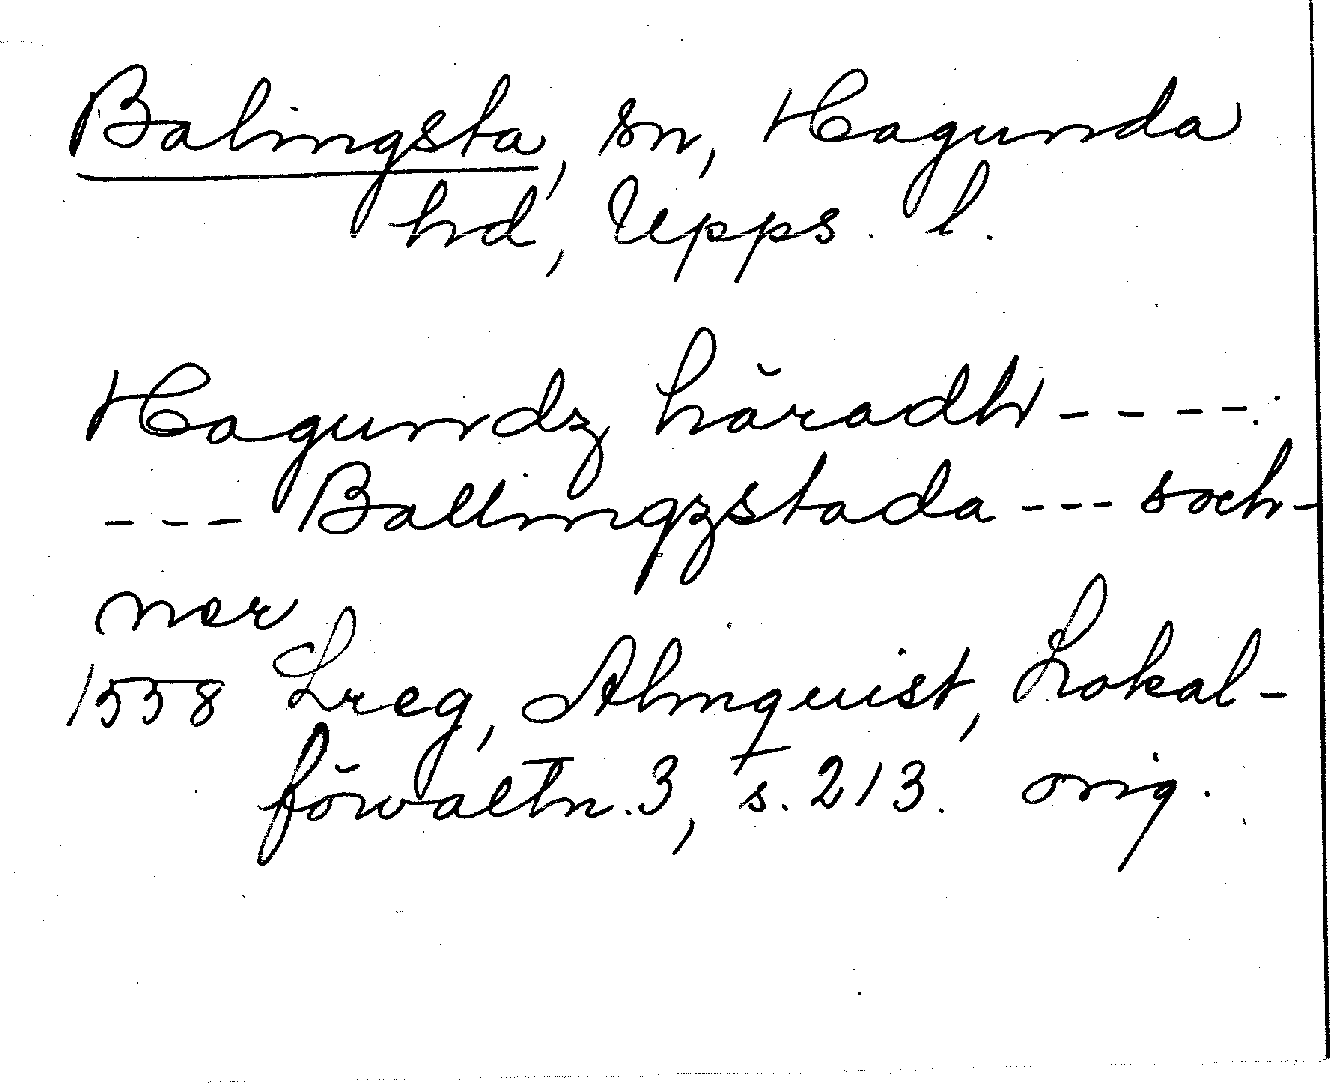 Balingsta, sn, Hagunda
hd, Upps. l.
Hagundz häradh - - - -
- - - Ballingzstada - - - soch-
ner
1558 Lreg, Almquist, Lokal-
förvaltn. 3, s. 213. orig.